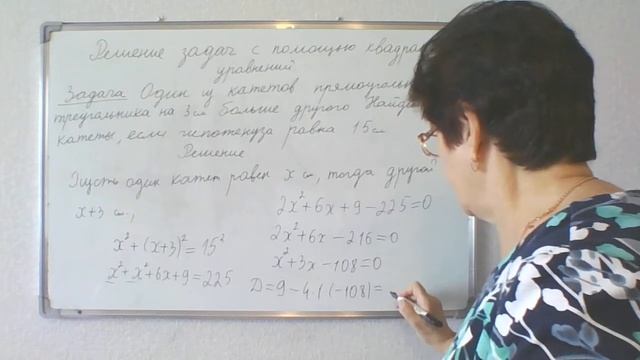 Решение задач с помощью
уравнений
Задача Один из катетов
треугольника на 3 см больше другого
катеты, если гипотенуза равна 15 см
Решение
Пусть один катет равен x см, тогда другой
x+3 см,
x²+(x+3)²=15²
x²+x²+6x+9=225
2x²+6x+9-225=0
2x²+6x-216=0
x²+3x-108=0
D=9-4·1·(-108)=